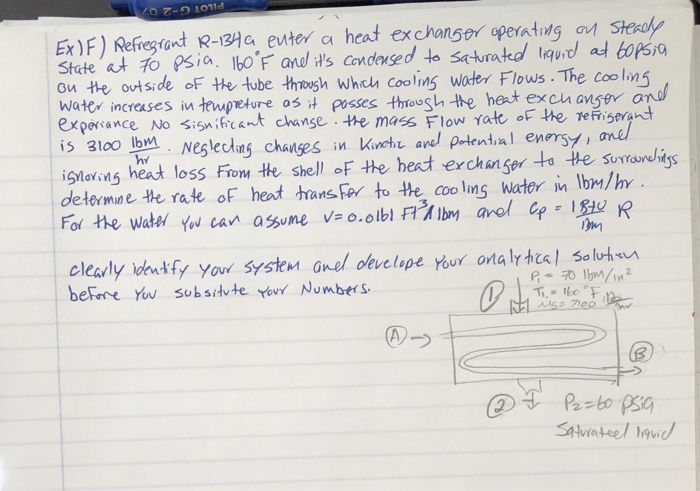 PILOT G-2 07
Ex)F) Refregrant R-134a enter a heat exchanger operating on steady
State at 70 psia. 160°F and it's condensed to saturated liquid at 60psia
on the outside of the tube through which cooling water Flows. The cooling
water increases in tempreture as it passes through the heat exchanger and
experiance No significant change. the mass Flow rate of the refrigerant
is 3100 lbm/hr. Neglecting changes in kinetic and potential energy, and
ignoring heat loss From the shell of the heat exchanger to the surroundings
determine the rate of heat transfer to the cooling water in lbm/hr.
For the water you can assume V=0.0161 Ft³/lbm and Cp = 1 Btu/lbm R
clearly identify your system and develope your analytical solution
before you subsitute your Numbers.
P₁ = 70 lbm/in²
① T₁ = 160°F
A
B
② P₂=60 psia
Saturated liquid